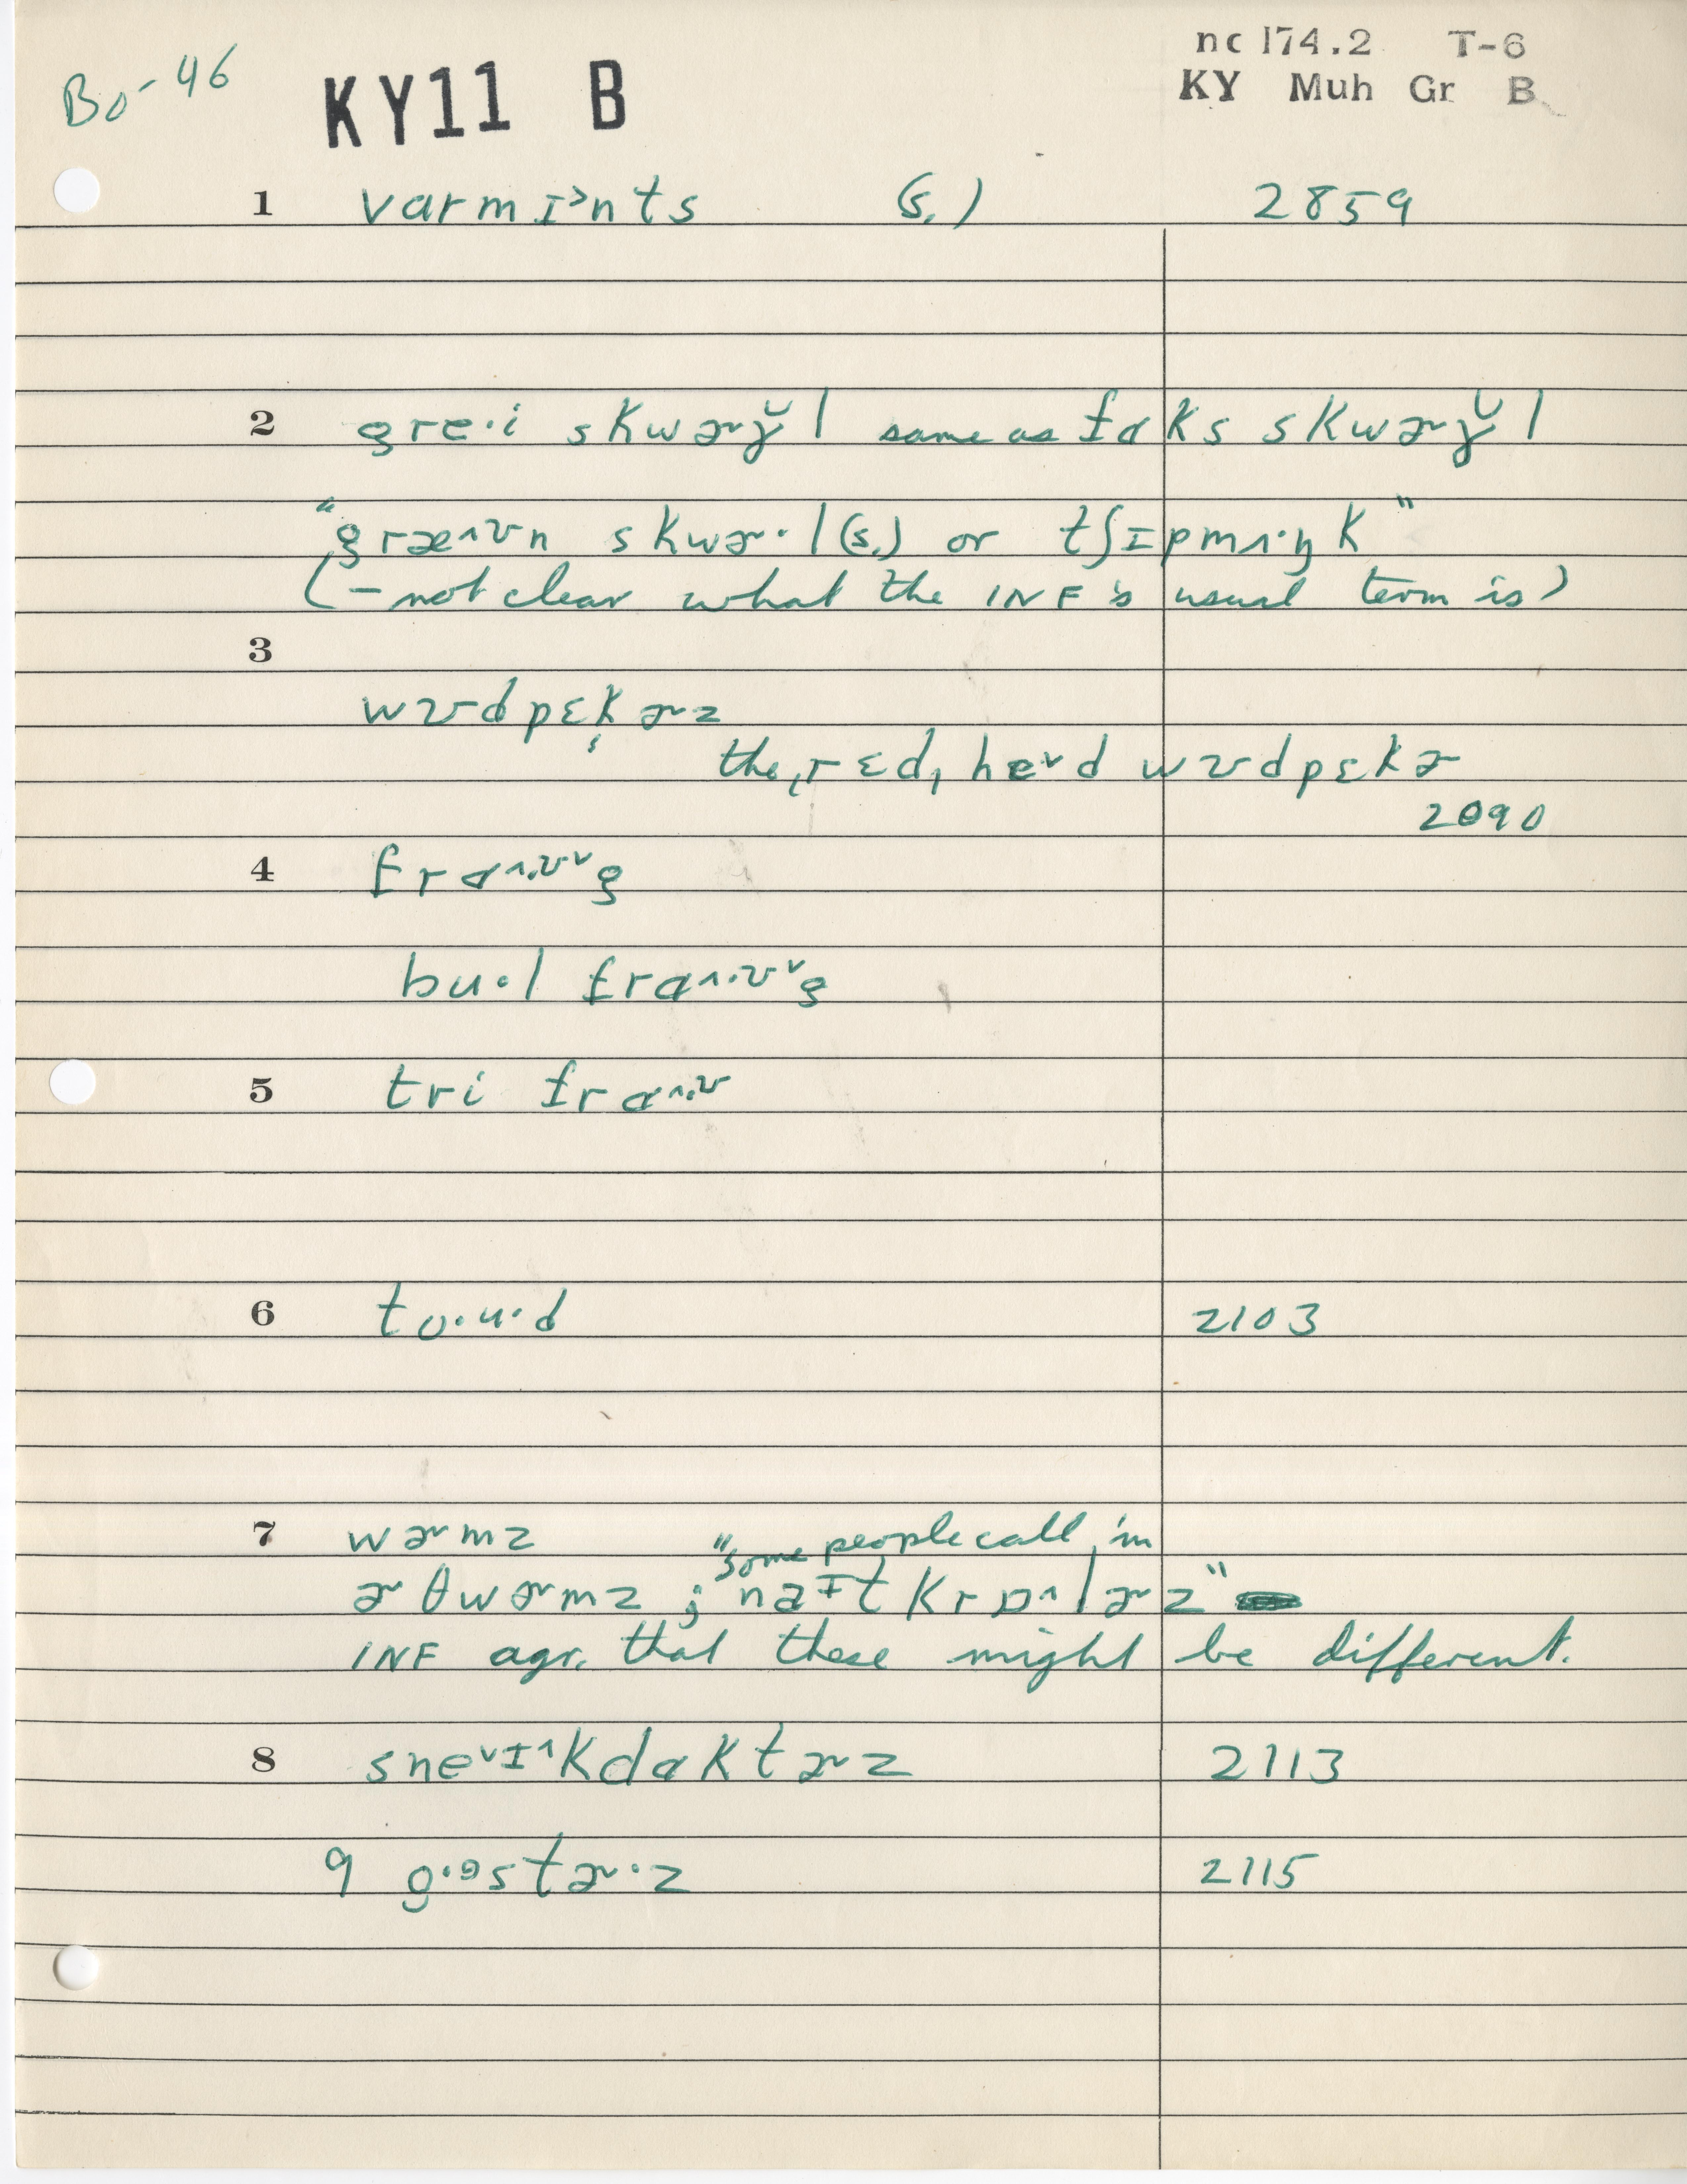 Bo-46 KY11 B nc 174.2 T-6
KY Muh Gr B
1 varmɪ˃nts (s.) 2859
2 gre·i skwɚɣ̆l same as fɑks skwɚɣ̆l
"græ˄ʊn skwɚ·l (s.) or tʃɪpmʌ·ŋk"
(– not clear what the INF's usual term is)
3
wʊdpɛkɚz
the ˌrɛdˌhe˅d wʊdpɛkɚ
2090
4 frɑ˄·ʊ˅g
bu·l frɑ˄·ʊ˅g
5 tri frɑ˄·ʊ
6 to·u·d 2103
7 wɚmz "some people call 'm
ɚθwɚmz ; naɪt krɒ˄lɚz"
INF agr. that these might be different.
8 sne˅ɪ˄kdɑktɚz 2113
9 go·əstɚ·z 2115